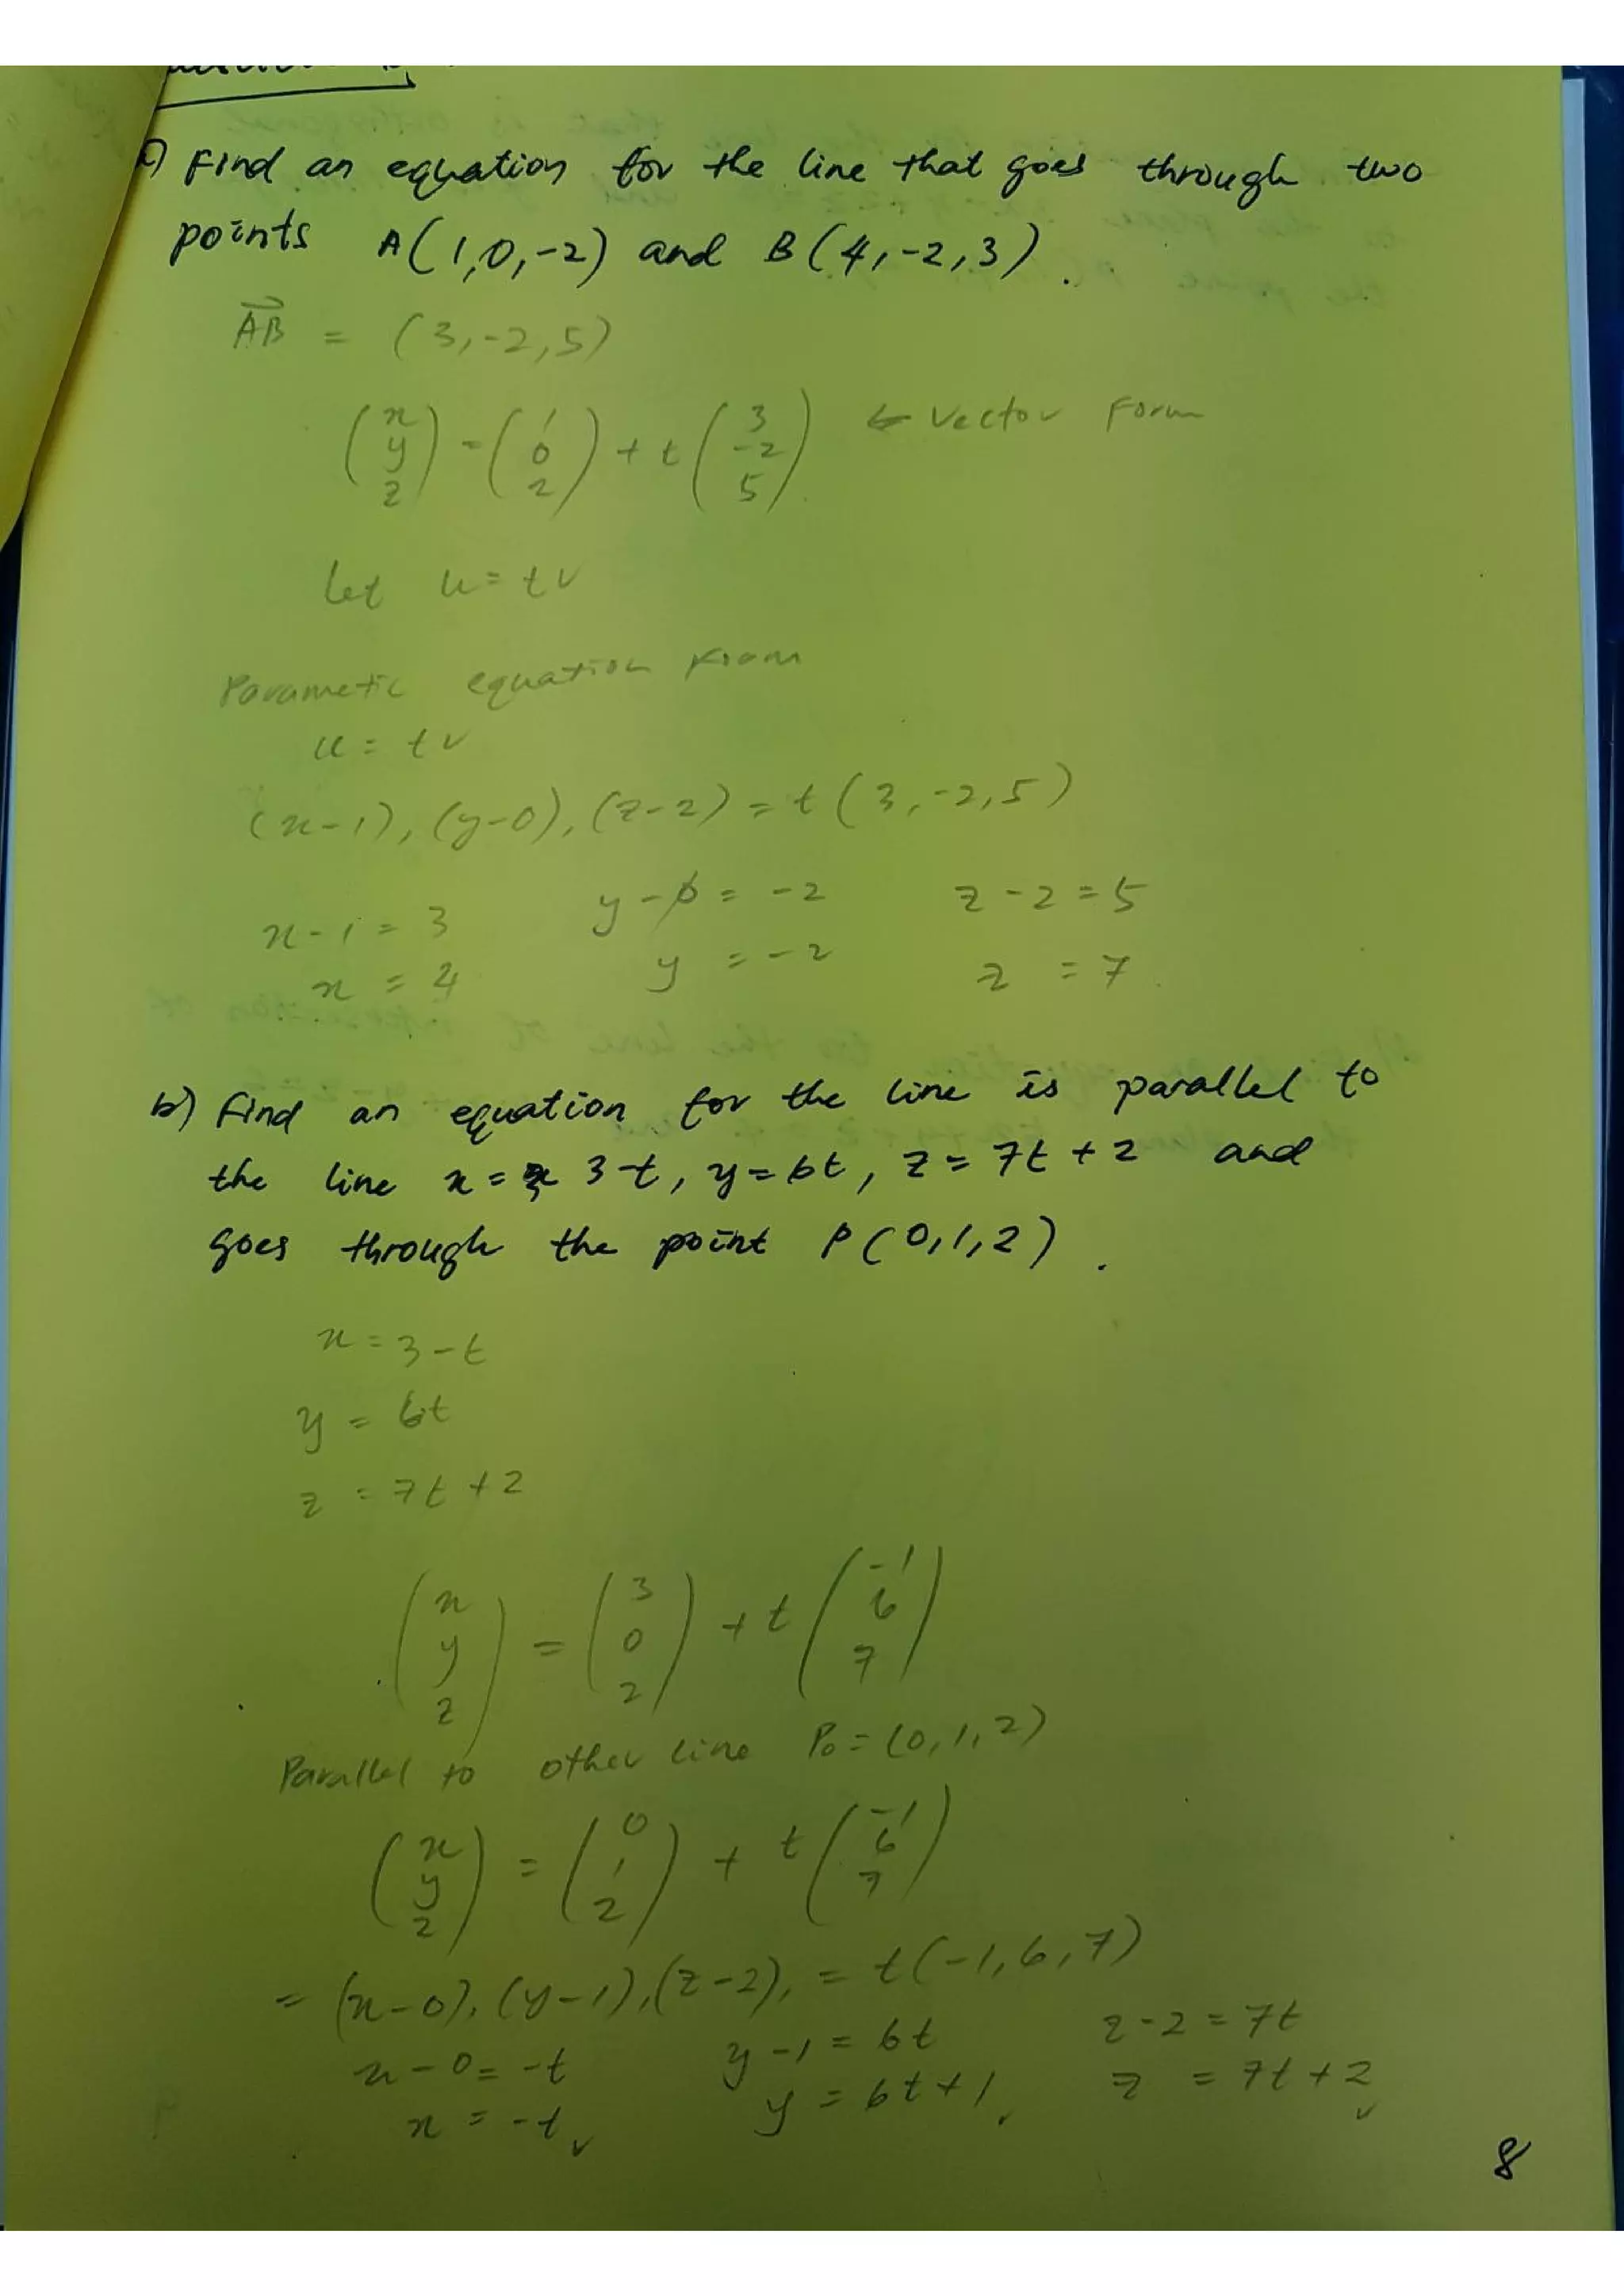 a) Find an equation for the line that goes through two
points A(1,0,-2) and B(4,-2,3).
AB = (3,-2,5)
(x y z) = (1 0 2) + t (3 -2 5) ← Vector Form
Let u = tv
Parametic equation from
u = tv
(x-1), (y-0), (z-2) = t(3,-2,5)
x-1 = 3 y-0 = -2 z-2 = 5
x = 4 y = -2 z = 7
b) Find an equation for the line is parallel to
the line x = 3-t, y = 6t, z = 7t+2 and
goes through the point P(0,1,2).
x = 3-t
y = 6t
z = 7t+2
(x y z) = (3 0 2) + t (-1 6 7)
Parallel to other line P₀ = (0,1,2)
(x y z) = (0 1 2) + t (-1 6 7)
= (x-0), (y-1), (z-2), = t(-1,6,7)
x-0 = -t y-1 = 6t z-2 = 7t
x = -t y = 6t+1 z = 7t+2
8